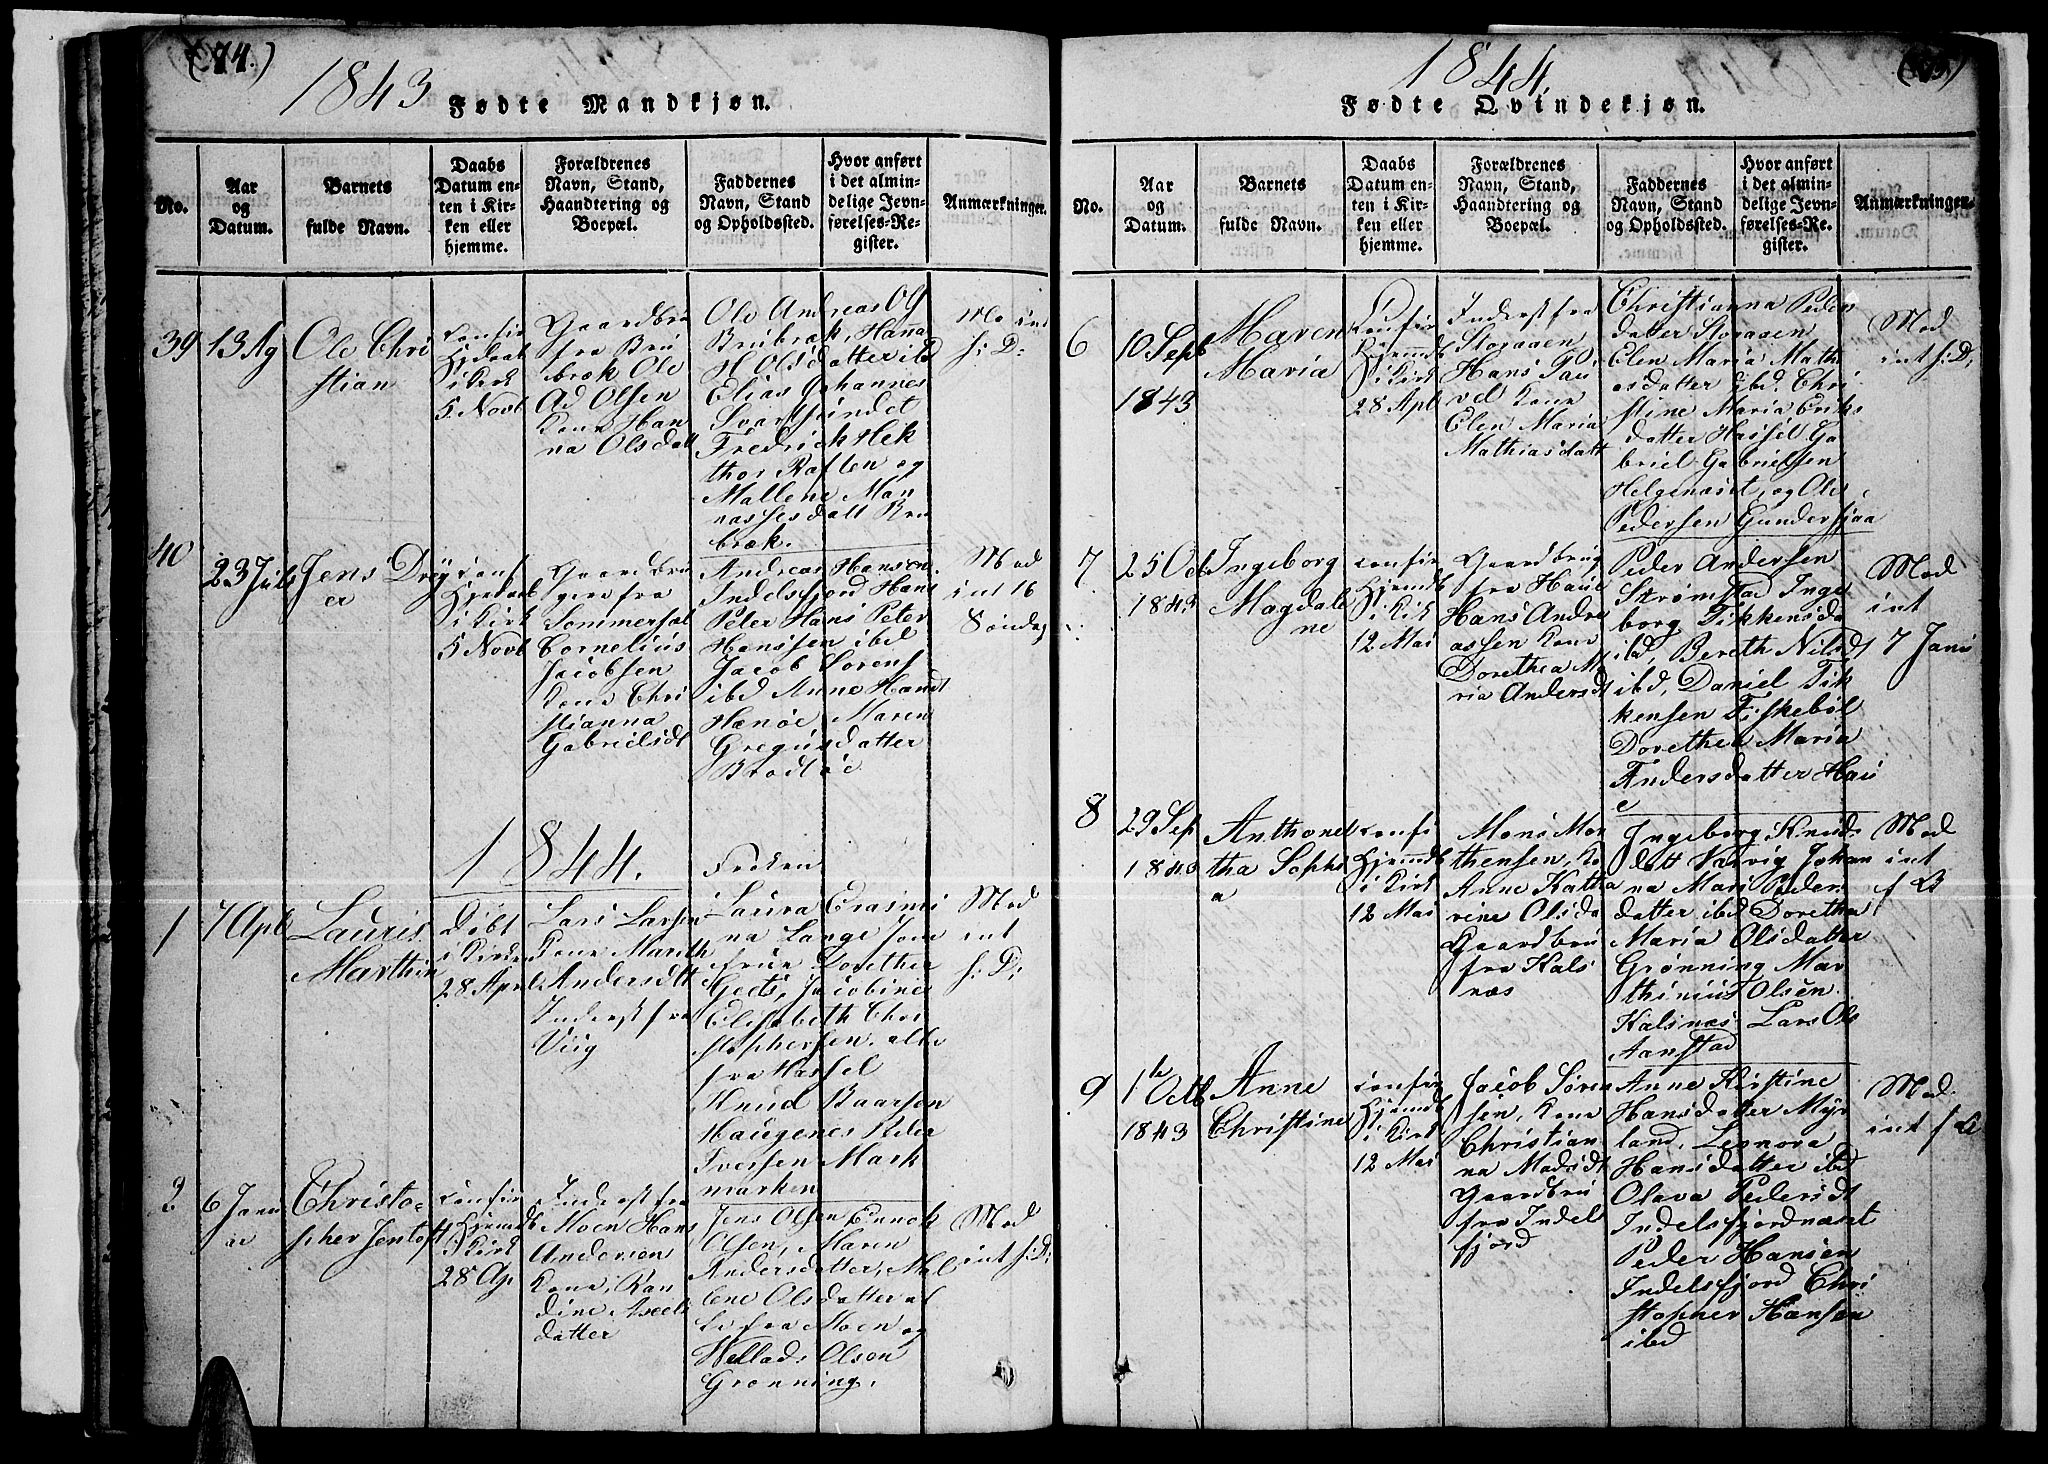 (74.)
1843
Fødte Mandkjøn.
No.
Aar
og
Datum.
Barnets
fulde Navn.
Daabs
Datum en-
ten i Kir-
ken eller
hjemme.
Forældrenes
Navn, Stand,
Haandtering og
Boepæl.
Faddernes
Navn, Stand
og Opholdssted.
Hvor anført
i det almin-
delige Jevn-
førelses-Re-
gister.
Anmærkninger.
39
13 Ag
Ole Chri
stian
Confir
Hjdøbt
i Kirk
5 Novb
Gaardbru
fra Bru
bræk Ole
Ad Olsen
Kone Han
na Olsdatt
Ole Andreas Ols
Brubræk, Hana
H Olsdatter ibd
Elias Johannes
Svartsundet
Fredrich Hek
thor Raften og
Mallene Man
nassesdatt Bru
bræk.
40
23 Juli
Jens Drey
er
Conf
Hjdøbt
i Kirk
5 Novb
Gaardbru
gere fra
Sommersæl
Cornelius
Jacobsen
Kone Chri
stianna
Gabrielsdt
Andreas Hansen
Indelsfjord Hans
Peter Hans Peter
Hanssen ibd
Jacob Sørens
ibd Anne Handt
Hanøe, Maren
Gregusdatter
Brodløe
Mod
int 16
Søndag
1844.
1
7 Apl
Lauris
Marthin
Døbt
i Kirken
28 April
Lars Larsen
Kone Marith
Andersdt
Inderst fra
Viig
Frøken
Laura Erasmi
na Lange Jom
fruer Dorethe
Geets, Jacobine
Elisabeth Chri
stophersen. alle
fra Hassel
Knud Baarsen
Haugenes Peder
Iversen Mark
marken
Mod
int
s: D:
2
6 Janu
ar
Christo=
pher Jentoft
Confir
Hjemdb
i Kirk
28 Ap
Inderst fra
Moen Hans
Andersen
Kone, Ran
dine Axels
datter
Jens Olsen Ennok
Olsen, Maren
Andersdatter, Mal
lene Olsdatter al
le fra Moen og
Hellads Olsen
Grønning.
Mod
int s: D:
1844.
Fødte Qvindekjøn.
No.
Aar
og
Datum.
Barnets
fulde Navn.
Daabs
Datum en-
ten i Kir-
ken eller
hjemme.
Forældrenes
Navn, Stand,
Haandtering og
Boepæl.
Faddernes
Navn, Stand
og Opholdssted.
Hvor anført
i det almin-
delige Jevn-
førelses-Re-
gister.
Anmærkninger.
6
10 Sept
1843
Maren
Maria
Confir
Hjemdb
i Kirk
28 Apl
Inderst fra
Storaaen
Hans Pau
vel Kone
Elen Maria
Mathiasdatt
Christianna Peder
datter Storaaen
Elen Maria Mathi
asdatter ibd. Chri
stine Maria Eriks
datter Hassel Ga
briel Gabrielsen
Helgenæset, og Ole
Pedersen Gunderstjaa
Mod
int s: D:
7
25 Oct
1843
Ingeborg
Magdale
ne
Confir
Hjemdt
i Kirk
12 Mai
Gaardbrug
fra Haue
Hans Andre
assen Kone
Dorethea Ma
ria Andersdt
Peder Andersen
Strømstad Inge
borg Tikkensda
ibd, Bereth Nilsdt
ibd, Daniel Tik
kensen Fiskebøl
Dorethea Maria
Andersdatter Hau
e
Mod
int
7 Janu
8
29 Sep
1843
Anthonet
tha Sophi
a
Confi
Hjemdb
i Kirk
12 Mai
Mons Mor
thensen, Ko
Anne Katha
rine Olsda
Gaardbru
fra Kals
næs
Ingeborg Knuds
dott Narvig Johan
na Mari Peder
datter ibd Dorethe
Maria Olsdatter
Grønning Mar
thinius Olsen
Kalsnæs Lars Ols
Aanstad
Mod
int
9
1te Octb
1843
Anne
Christine
Confir
Hjemdb
i Kirk
12 Mai
Jacob Søren
sen, Kone
Christian
na Madsdt
Gaardbru
fra Indel
fjord
Anne Kirstine
Hansdatter Myr
land, Leonora
Hansdatter ibd
Olava Pedersdt
Indelsfjordnæset
Peder Hansen
Indelsfjord Chri
stopher Hansen
ibd
Mod